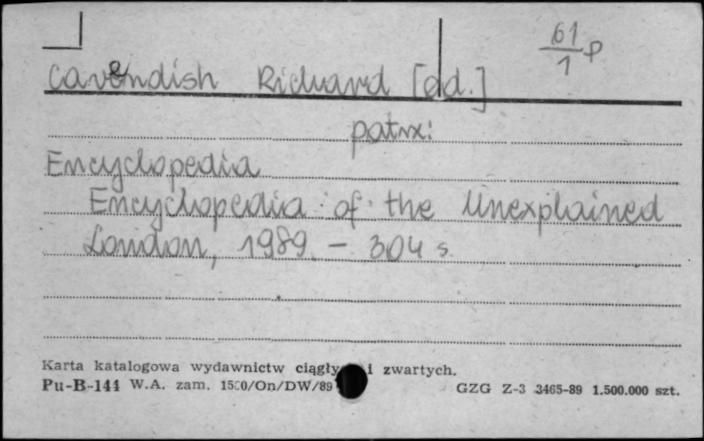 61
1 p
Cavendish Richard [ed.]
patrz:
Encyclopedia
Encyclopedia of the Unexplained
London, 1989. – 304 s.
Karta katalogowa wydawnictw ciągły i zwartych.
Pu-B-144 W.A. zam. /On/DW/89 GZG Z-3 3465-89 1.500.000 szt.